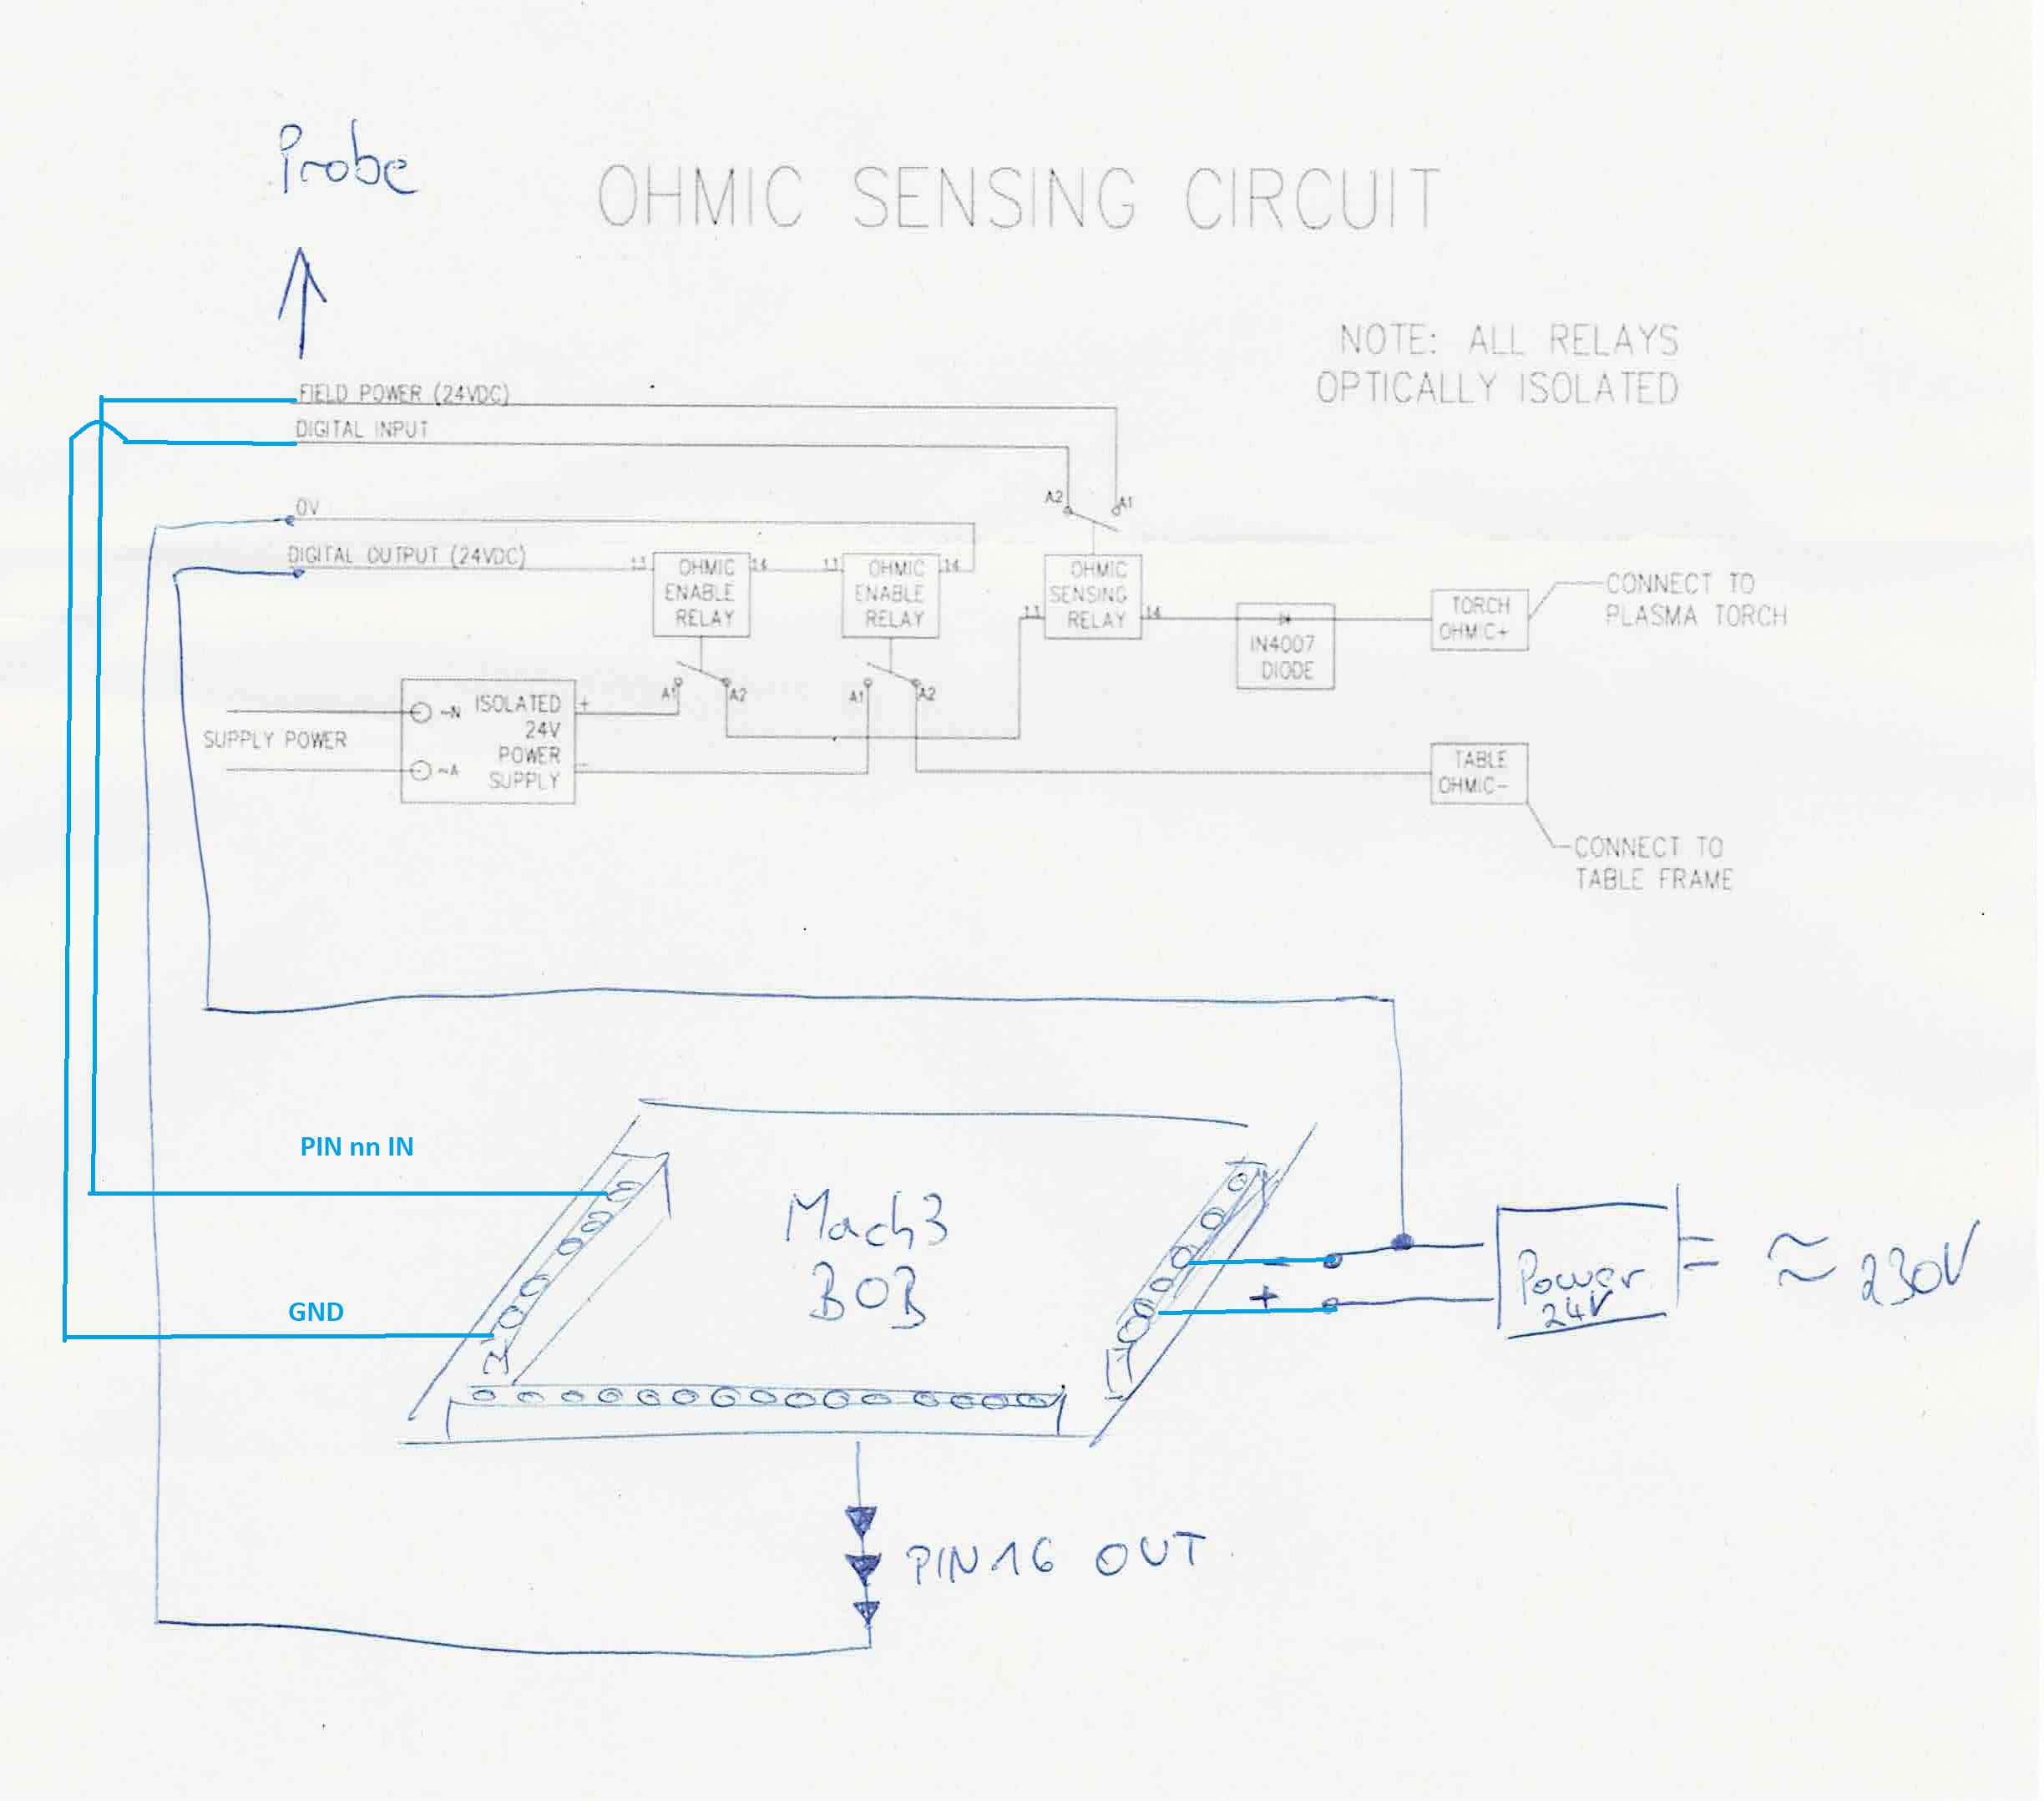 Probe
OHMIC SENSING CIRCUIT
NOTE: ALL RELAYS
OPTICALLY ISOLATED
FIELD POWER (24VDC)
DIGITAL INPUT
A2
A1
0V
DIGITAL OUTPUT (24VDC)
13
OHMIC
ENABLE
RELAY
14
13
OHMIC
ENABLE
RELAY
14
OHMIC
SENSING
RELAY
13
14
IN4007
DIODE
TORCH
OHMIC+
CONNECT TO
PLASMA TORCH
A1
A2
A1
A2
SUPPLY POWER
~N
~A
ISOLATED
24V
POWER
SUPPLY
+
-
TABLE
OHMIC-
CONNECT TO
TABLE FRAME
PIN nn IN
GND
Mach3
BOB
-
+
Power
24V
≈ 230V
PIN 16 OUT